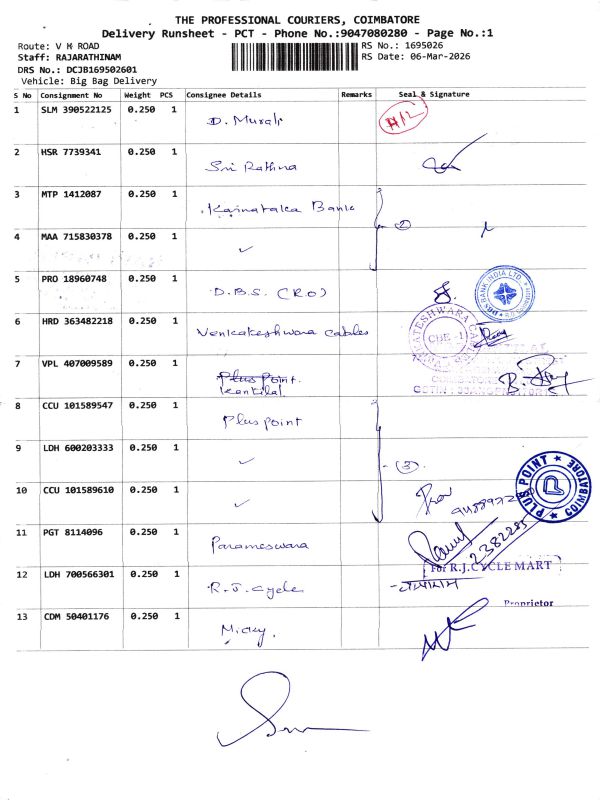 THE PROFESSIONAL COURIERS, COIMBATORE
Delivery Runsheet - PCT - Phone No.:9047080280 - Page No.:1
Route: V H ROAD
RS No.: 1695026
Staff: RAJARATHINAM
RS Date: 06-Mar-2026
DRS No.: DCJB169502601
Vehicle: Big Bag Delivery
S No Consignment No Weight PCS Consignee Details Remarks Seal & Signature
1 SLM 390522125 0.250 1 D. Murali
2 HSR 7739341 0.250 1 Sri Rathna
3 MTP 1412087 0.250 1 Karnataka Bank
4 MAA 715830378 0.250 1 ✓
②
5 PRO 18960748 0.250 1 D.B.S. (RO)
DBS BANK INDIA LTD.
6 HRD 363482218 0.250 1 Venkakeshwara cables
CBE -1
7 VPL 407009589 0.250 1 Plus Point.
Kantilal
8 CCU 101589547 0.250 1 Plus point
9 LDH 600203333 0.250 1 ✓
③
10 CCU 101589610 0.250 1 ✓
PLUS POINT ★ COIMBATORE ★
11 PGT 8114096 0.250 1 Parameswara
2382285
12 LDH 700566301 0.250 1 R.J. Cycle
For R.J.CYCLE MART
Proprietor
13 CDM 50401176 0.250 1